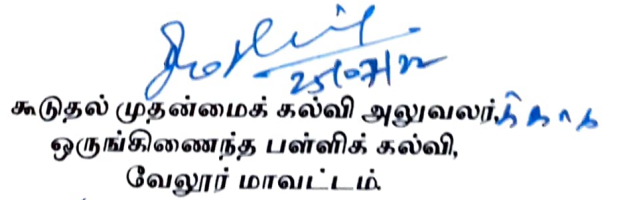 25/07/22
கூடுதல் முதன்மைக் கல்வி அலுவலர்,
ஒருங்கிணைந்த பள்ளிக் கல்வி,
வேலூர் மாவட்டம்.